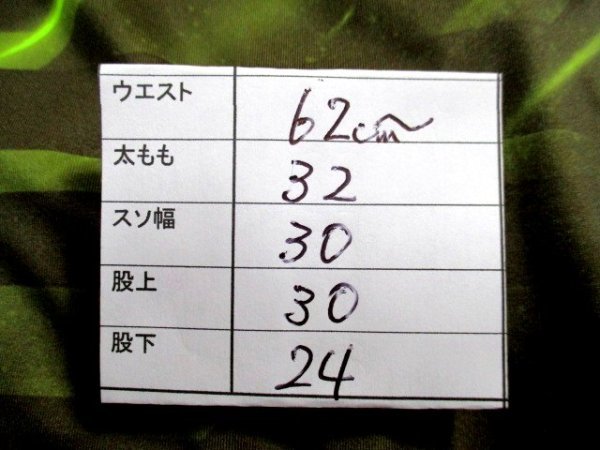 ウエスト 62cm〜
太もも 32
スソ幅 30
股上 30
股下 24